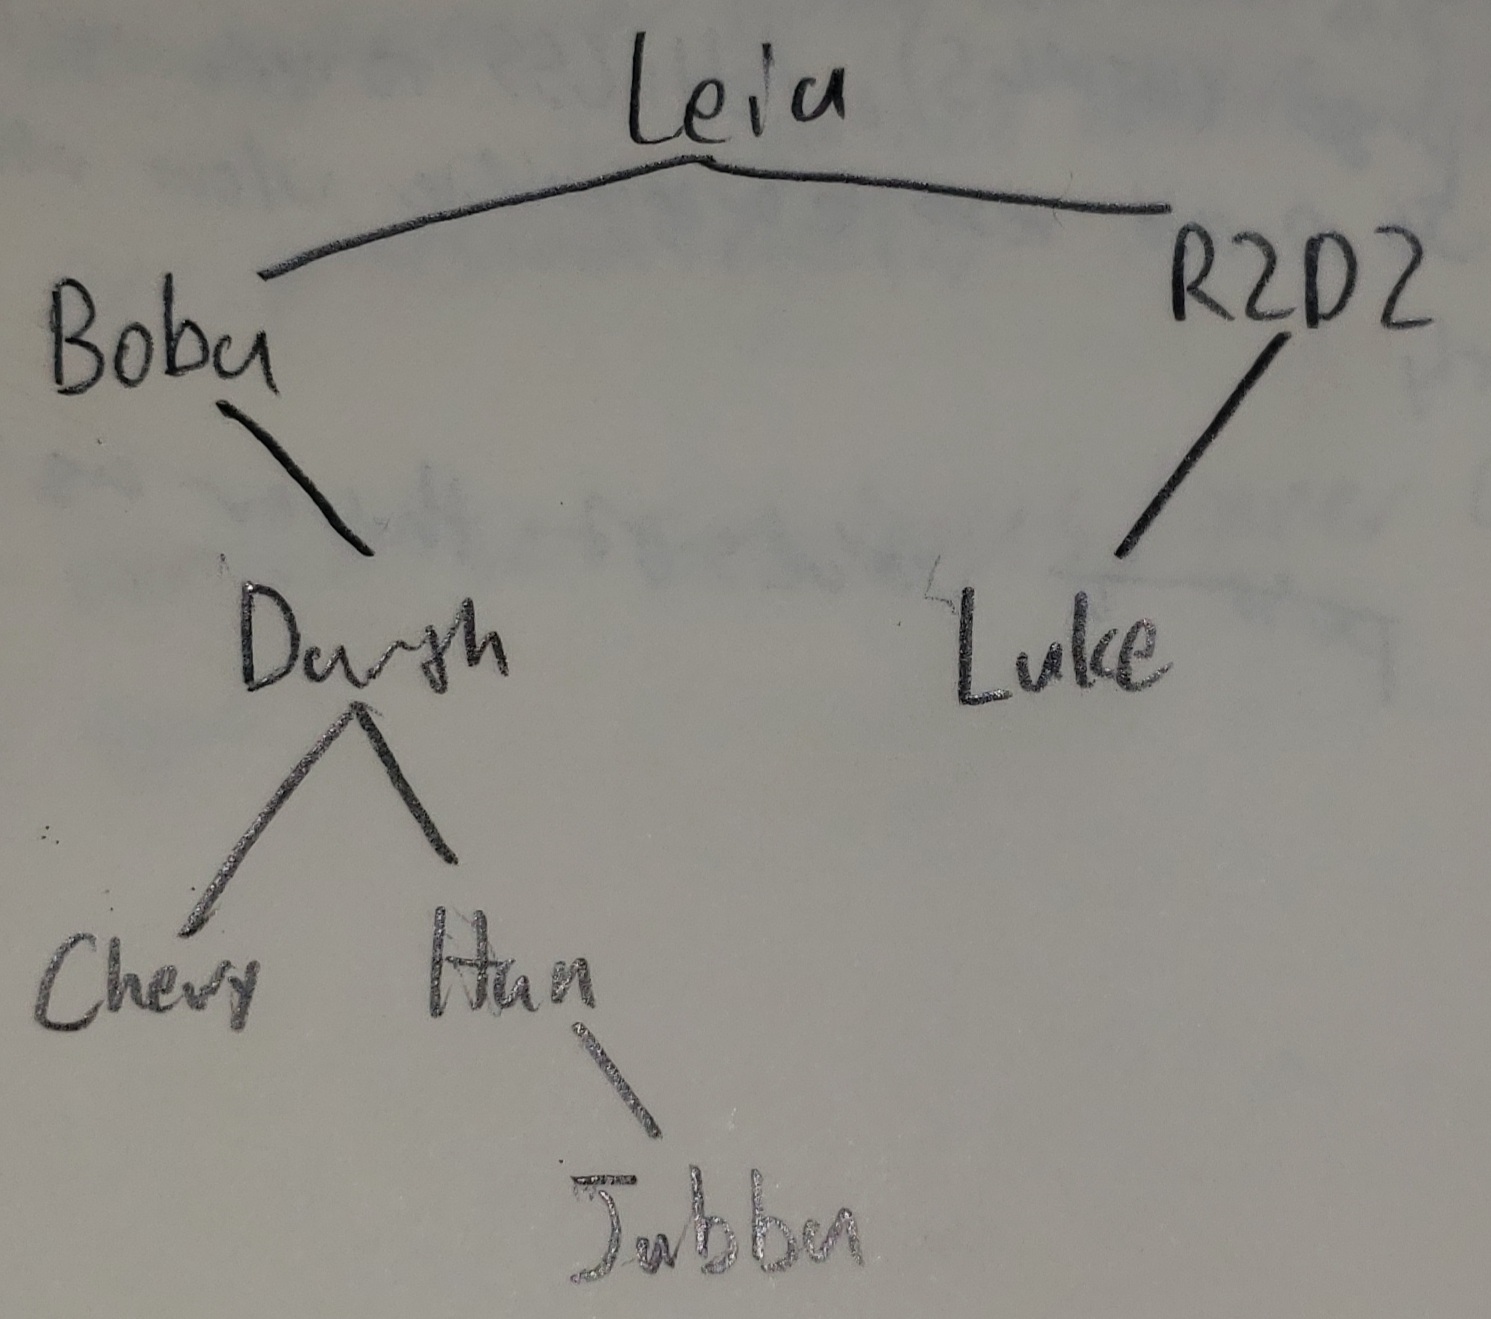 Leia
Boba R2D2
Darth Luke
Chewy Han
Jabba